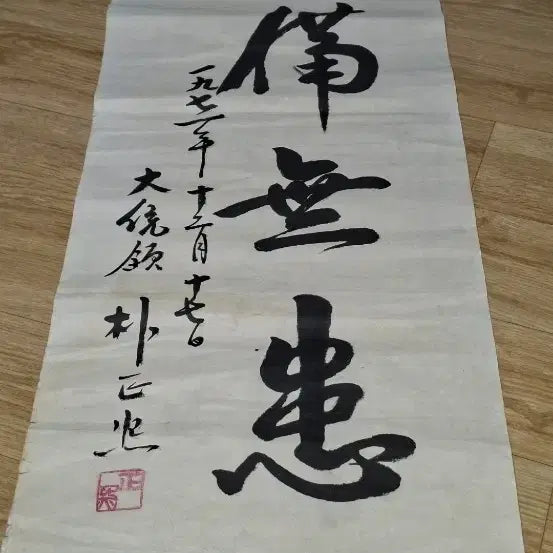 備無患
一九七一年 十二月 十七日
大統領
朴正熙
正熙